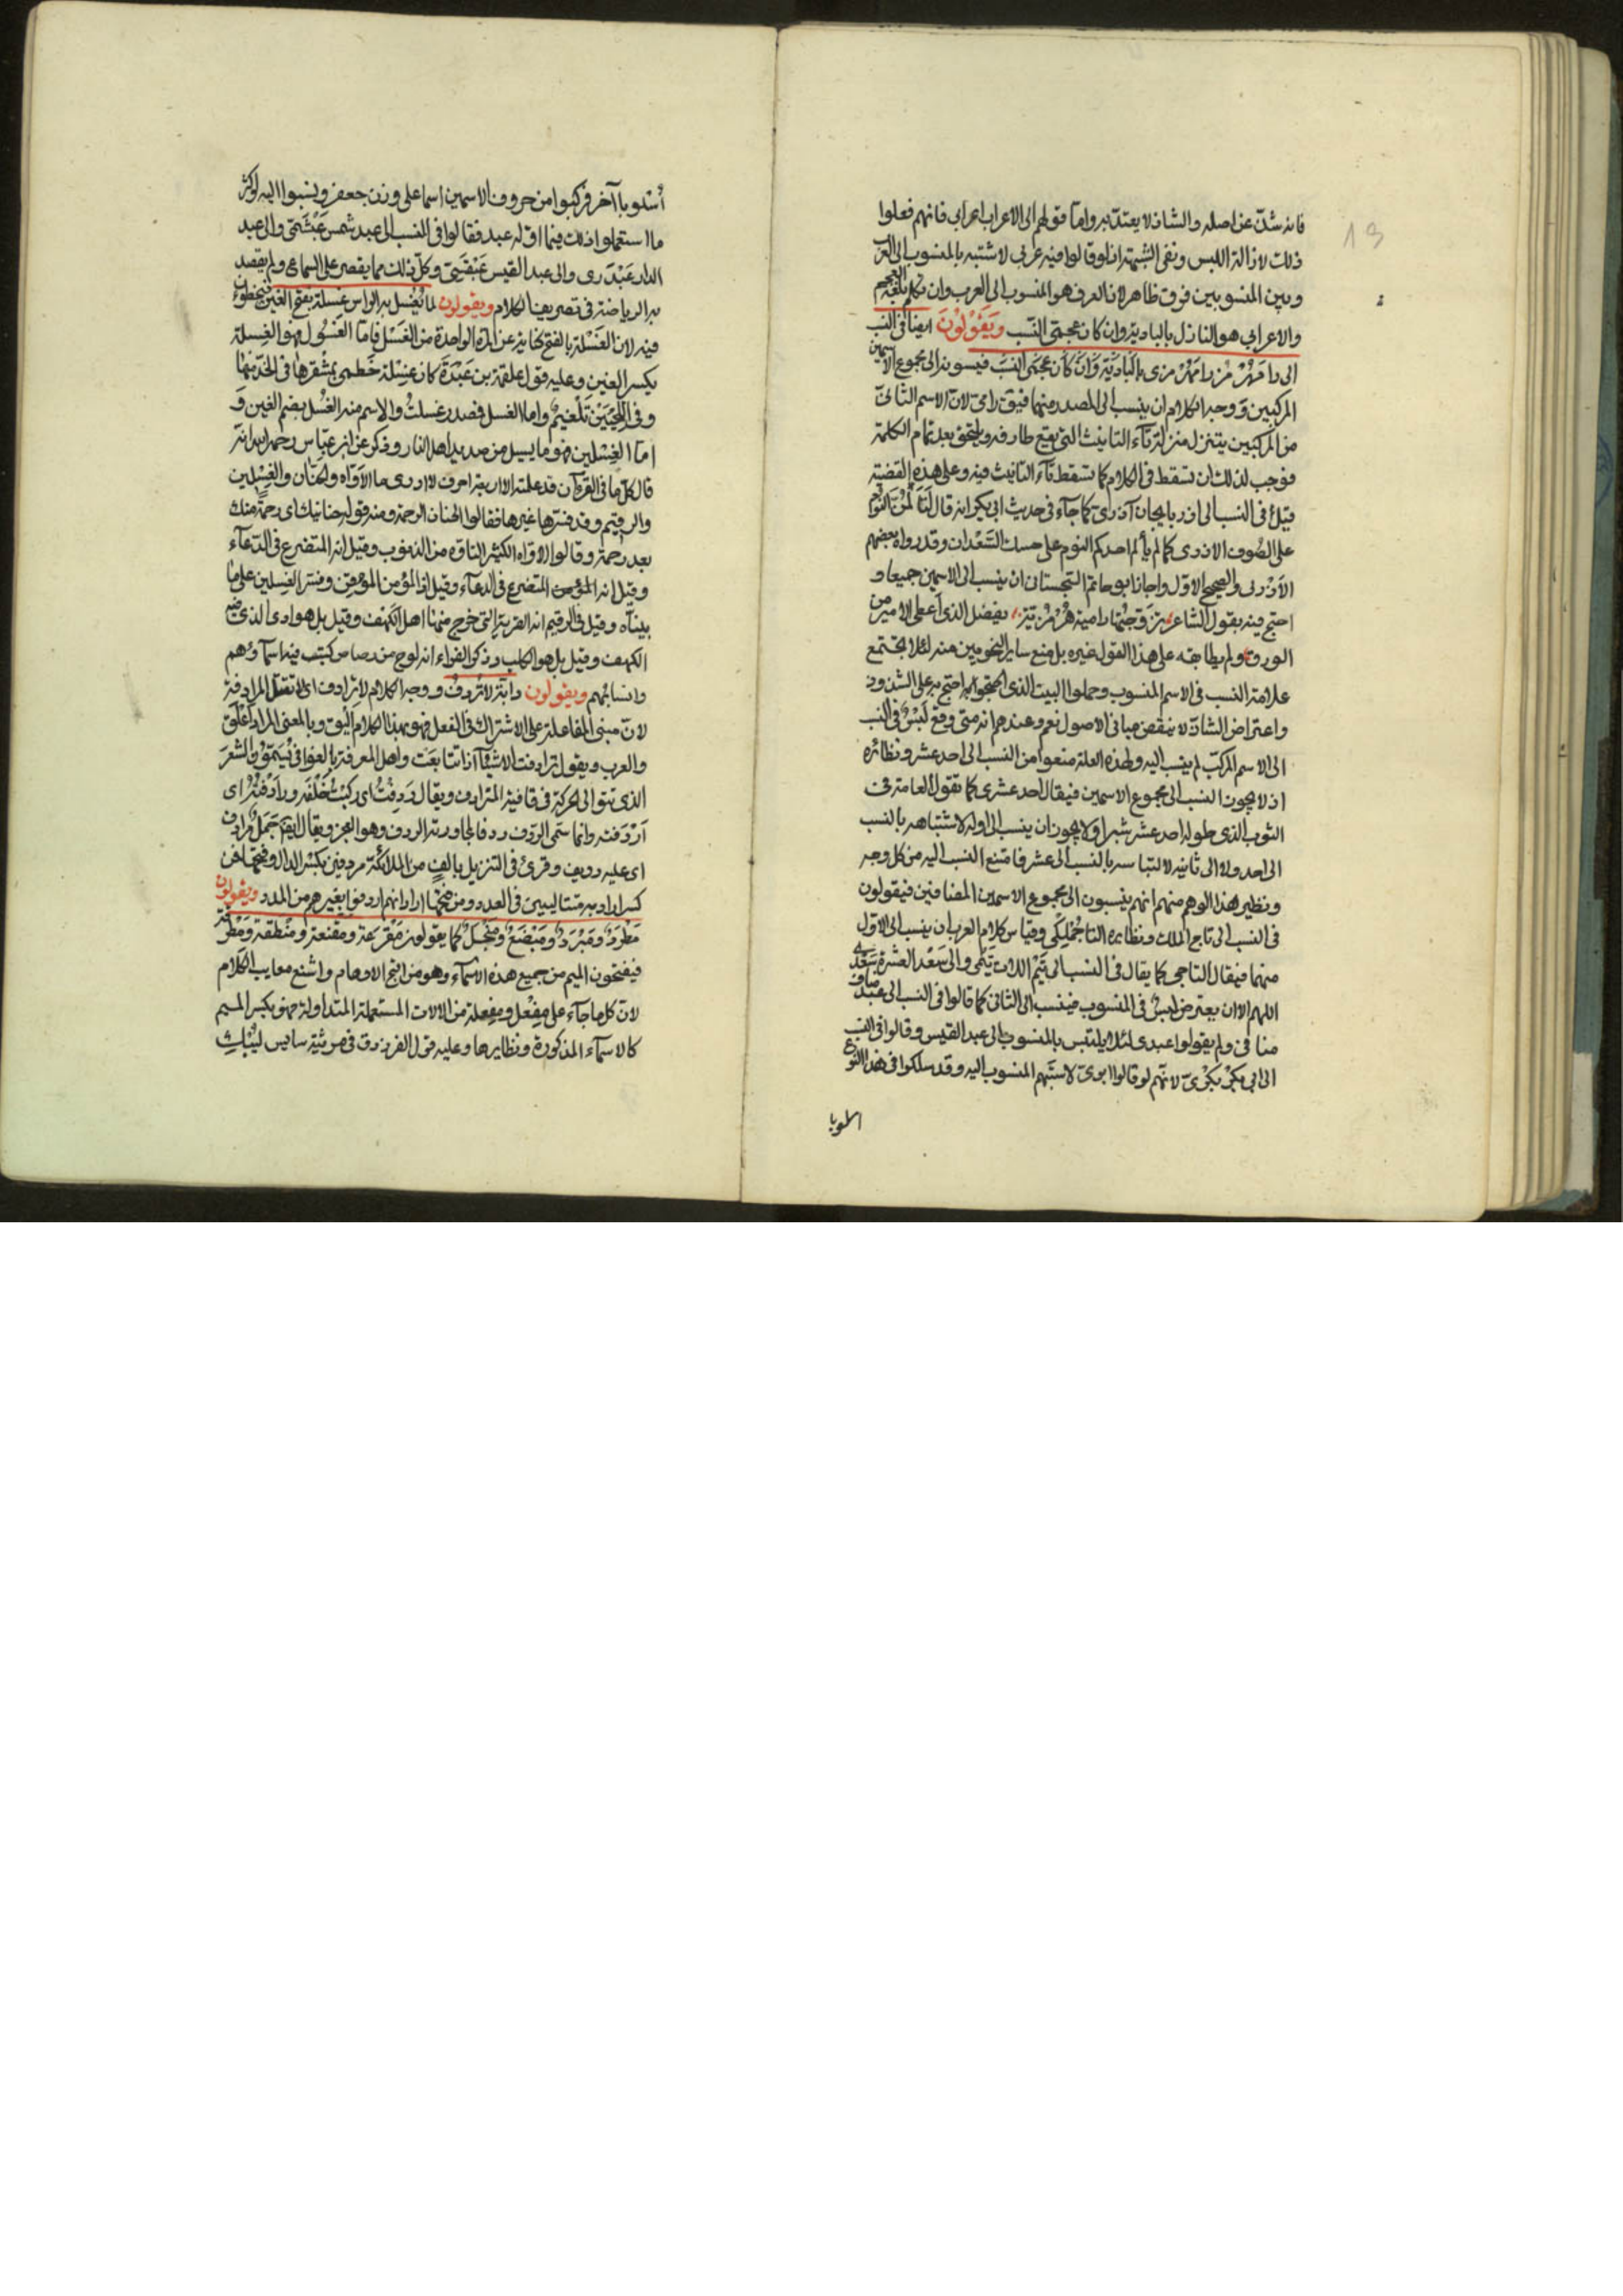 فانه شذ عن اصله والشاذ لا يعتد به واما قولهم الى الاعراب اعرابى فانهم فعلوا
ذلك لازالة اللبس ونفى الشبهة اذ لو قالوا فيه عربى لاشتبه بالمنسوب الى العرب
وبين المنسوبين فرق ظاهر لان العربى هو المنسوب الى العرب وان تكلم بلغة العجم
والاعرابى هو النازل بالبادية وان كان عجمى النسب ويقولون ايضا فى النسب
الى رامهرمز رامهرمزى بالبادية وان كان عجمى النسب فيسبونه الى مجموع الاسمين
المركبين ووجه الكلام ان ينسب الى الصدر منهما فيق رامى لان الاسم الثانى
من المركبين يتنزل منزلة تآء التانيث التى تقع طارفة وتلتحق بعد تمام الكلمة
فوجب لذلك ان تسقط فى الكلام كما تسقط تآء التانيث فيه وعلى هذه القضية
قيل فى النسب الى اذربايجان آذرى كما جآء فى حديث ابى بكر انه قال لتألمن النوم
على الصوف الاذرى كما يألم احدكم النوم على حسك السعدان وقد رواه بعضهم
الاذرى والصحيح الاول واجاز ابو حاتم السجستانى ان ينسب الى الاسمين جميعا و
احتج فيه بقول الشاعر تزوجتها رامية هرمزية، بفضل الذى اعطى الامير من
الورق ولم يطابقه على هذا القول غيره بل منع ساير النحويين منه لئلا يجتمع
علامة النسب فى الاسم المنسوب وحملوا البيت الذى احتج به على الشذوذ
واعتراض الشاذ لا ينقض مبانى الاصول نعم وعندهم انه متى وقع لبس فى النسب
الى الاسم المركب لم ينسب اليه ولهذه العلة منعوا من النسب الى احد عشر ونظائره
اذ لا يجوز النسب الى مجموع الاسمين فيقال احد عشرى كما تقول العامة فى
الثوب الذى طوله احد عشر شبرا ولا يجوز ان ينسب الى اوله لاشتباهه بالنسب
الى احد ولا الى ثانيه لالتباسه بالنسب الى عشر فامتنع النسب اليه من كل وجه
ونظير هذا الوهم منهم انهم ينسبون الى مجموع الاسمين المضافين فيقولون
فى النسب الى تاج الملك ونظايره التاجملكى وقياس كلام العرب ان ينسب الى الاول
منهما فيقال التاجى كما يقال فى النسب الى تيم اللات تيمى والى سعد العشرة سعدى
اللهم الا ان يعترض لبس فى المنسوب فينسب الى الثانى كما قالوا فى النسب الى عبد مناف
منافى ولم يقولوا عبدى لئلا يلتبس بالمنسوب الى عبد القيس وقالوا فى النسب
الى ابى بكر بكرى لانهم لو قالوا ابوى لاستبهم المنسوب اليه وقد سلكوا فى هذا النوع
اسلوبا
أسلوبا آخر فركبوا من حروف الاسمين اسما على وزن جعفر وينسبوا اليه
ما استعملوا ذلك فيما اوله عبد فقالوا فى النسب الى عبد شمس عبشمى والى عبد
الدار عبدرى والى عبد القيس عبقسى وكل ذلك مما يقصر على السماع ولم يقصد
به الرياضة فى تصريف الكلام ويقولون لما يغسل به الراس غسلة بفتح الغين فيخطئون
فيه لان الغسلة بالفتح كناية عن المرة الواحدة من الغسل فاما الغسول فهو الغسلة
بكسر الغين وعليه قول علقمة بن عبدة كان غسلة خطمى بمشفرها فى الخد منها
وفى اللحيين تلغيم واما الغسل فمصدر غسلت والاسم منه الغسل بضم الغين و
اما الغسلين فهو ما يسيل من صديد اهل النار وذكر عن ابن عباس رحمه الله انه
قال كل ما فى القرآن قد علمته الا اربعة احرف لا ادرى ما الاواه والحنان والغسلين
والرقيم وقد فسرها غيرها فقالوا الحنان الرحمة ومنه قوله حنانيك اى رحمة منك
بعد رحمة وقالوا الاواه الكثير التاوه من الذنوب وقيل انه المتضرع فى الدعآء
وقيل انه المؤمن المتضرع فى الدعآء وقيل انه المؤمن الموقن وفسر الغسلين على ما
بيناه وقيل فى الرقيم انه القرية التى خرج منها اهل الكهف وقيل بل هو الوادى الذى فيه
الكهف وقيل بل هو الكلب وذكر الفراء انه لوح من رصاص كتب فيه اسمآؤهم
وانسابهم ويقولون دابة لا تردف ووجه الكلام لا ترادف اى لا تقبل المرادفة
لان مبنى المفاعلة على الاشتراك فى الفعل فهو بهذا الكلام اليق وبالمعنى المراد اعلق
والعرب ويقول ترادفت الاشيآ اذا تتابعت واهل المعرفة بالقوافى يسمون الشعر
الذى تتوالى الحركة فى قافيته المترادف ويقال ردفت اى ركبت خلفه وردفته اى
اردفته وانما سمى الردف ردفا لمجاورته الردف وهو العجز ويقال ايضا جمل مرادف
اى عليه رديف وقرئ فى التنزيل بالف من الملائكة مردفين بكسر الدال وفتحها فمن
كسر اراد به متتالبين فى العدد ومن فتحها اراد انهم اردفوا بغيرهم من المدد ويقولون
مطرد ومبرد ومبضع ومنجل كما يقولون مقرعة ومقنعة ومنطقة ومطرقة
فيفتحون الميم من جميع هذه الاسمآء وهو من اقبح الاوهام واشنع معايب الكلام
لان كل ما جآء على مفعل ومفعلة من الالات المستعملة المتداولة فهو بكسر الميم
كالاسمآء المذكورة ونظايرها وعليه قول الفرزدق فى مرثية سايس ليبك